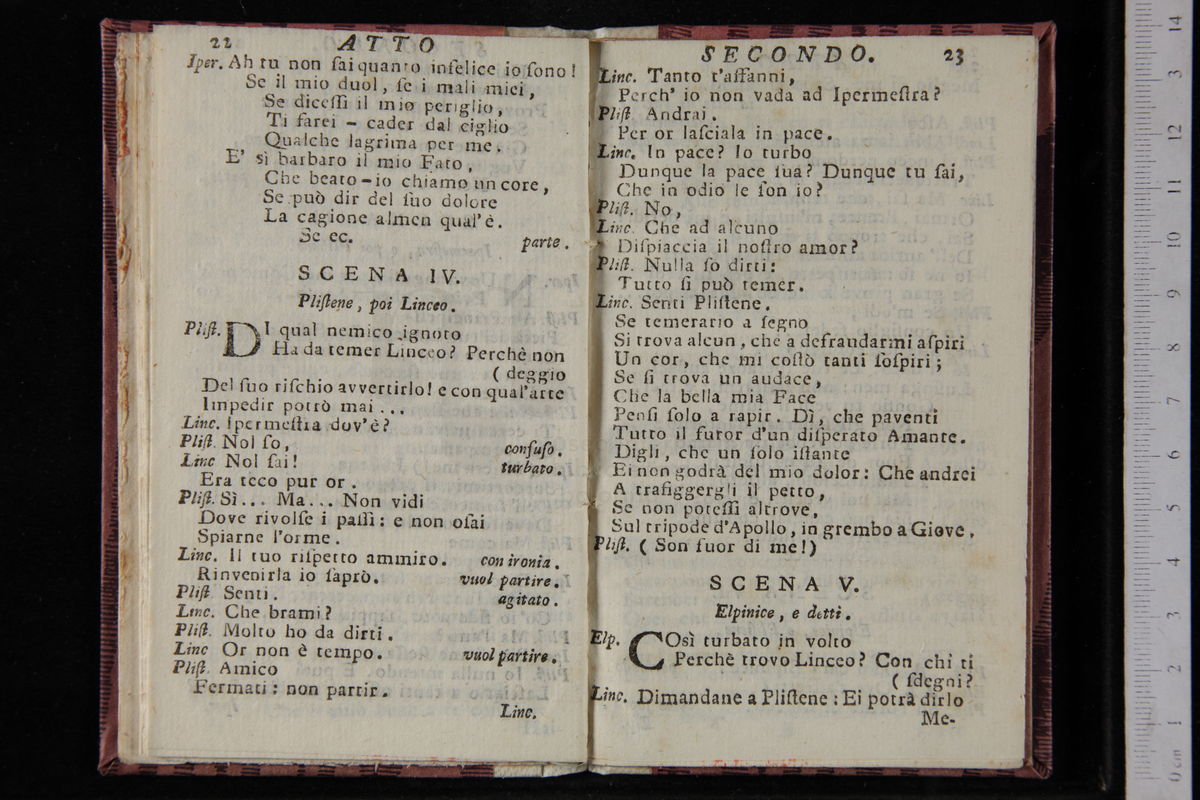 22 ATTO
Iper. Ah tu non ſai quanto infelice io ſono!
Se il mio duol, ſe i mali miei,
Se diceſſi il mio periglio,
Ti farei - cader dal ciglio
Qualche lagrima per me.
E' sì barbaro il mio Fato,
Che beato - io chiamo un core,
Se può dir del ſuo dolore
La cagione almen qual'è.
Se ec. parte.
SCENA IV.
Pliſtene, poi Linceo.
Pliſt. DI qual nemico ignoto
Ha da temer Linceo? Perchè non
( deggio
Del ſuo riſchio avvertirlo! e con qual'arte
Impedir potrò mai...
Linc. Ipermeſtra dov'è?
Pliſt. Nol ſo, confuſo.
Linc Nol ſai! turbato.
Era teco pur or.
Pliſt. Sì... Ma... Non vidi
Dove rivolſe i paſſi: e non oſai
Spiarne l'orme.
Linc. Il tuo riſpetto ammiro. con ironia.
Rinvenirla io ſaprò. vuol partire.
Pliſt. Senti. agitato.
Linc. Che brami?
Pliſt. Molto ho da dirti.
Linc Or non è tempo. vuol partire.
Pliſt. Amico
Fermati: non partir.
Linc.
SECONDO. 23
Linc. Tanto t'affanni,
Perch' io non vada ad Ipermeſtra?
Pliſt. Andrai.
Per or laſciala in pace.
Linc. In pace? Io turbo
Dunque la pace ſua? Dunque tu ſai,
Che in odio le ſon io?
Pliſt. No,
Linc. Che ad alcuno
Diſpiaccia il noſtro amor?
Pliſt. Nulla ſo dirti:
Tutto ſi può temer.
Linc. Senti Pliſtene.
Se temerario a ſegno
Si trova alcun, che a defraudarmi aſpiri
Un cor, che mi coſtò tanti ſoſpiri;
Se ſi trova un audace,
Che la bella mia Face
Penſi ſolo a rapir. Dì, che paventi
Tutto il furor d'un diſperato Amante.
Digli, che un ſolo iſtante
Ei non godrà del mio dolor: Che andrei
A trafiggergli il petto,
Se non poteſſi altrove,
Sul tripode d'Apollo, in grembo a Giove.
Pliſt. ( Son fuor di me!)
SCENA V.
Elpinice, e detti.
Elp. COsì turbato in volto
Perchè trovo Linceo? Con chi ti
( ſdegni?
Linc. Dimandane a Pliſtene: Ei potrà dirlo
Me-
0 cm 1 2 3 4 5 6 7 8 9 10 11 12 3 14